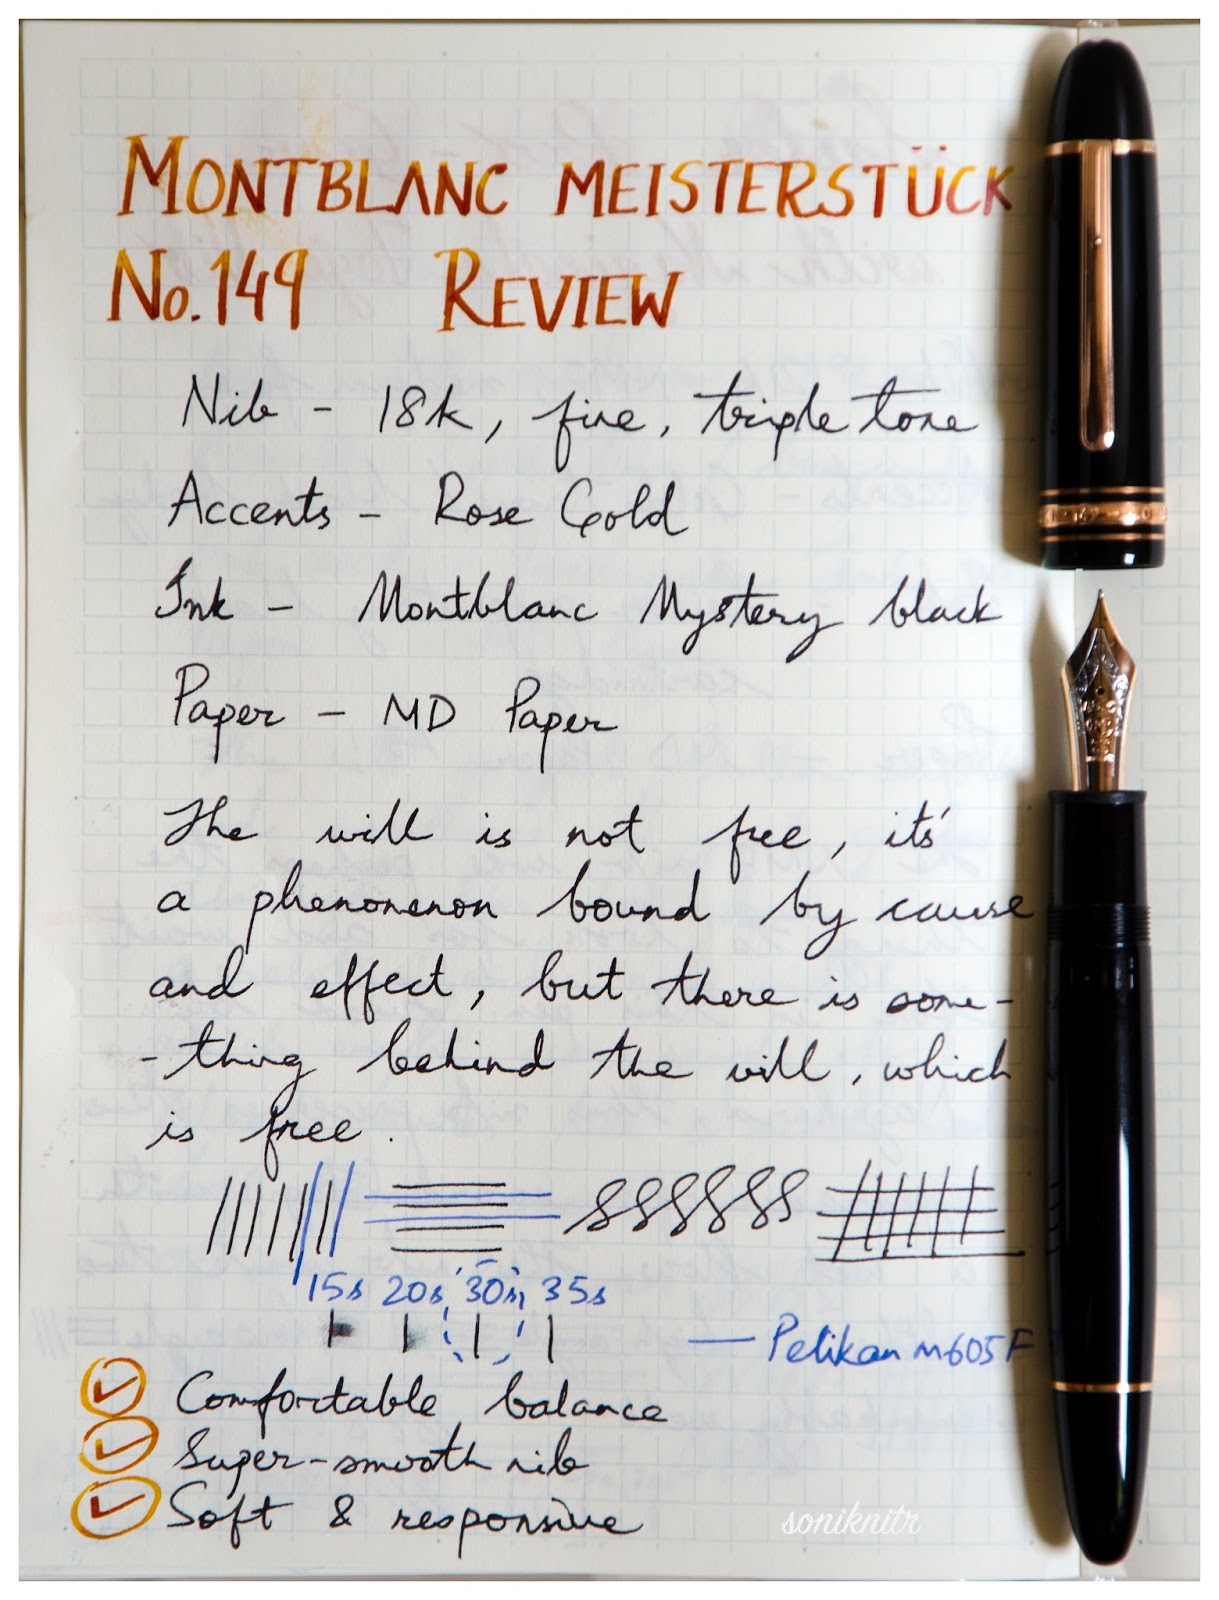 MONTBLANC MEISTERSTÜCK
No.149 REVIEW
Nib - 18k, fine, triple tone
Accents - Rose Gold
Ink - Montblanc Mystery black
Paper - MD Paper
The will is not free, it's
a phenomenon bound by cause
and effect, but there is some-
-thing behind the will, which
is free.
15s 20s 30s 35s
— Pelikan M605 F
Comfortable balance
Super-smooth nib
Soft & responsive
soniknitr